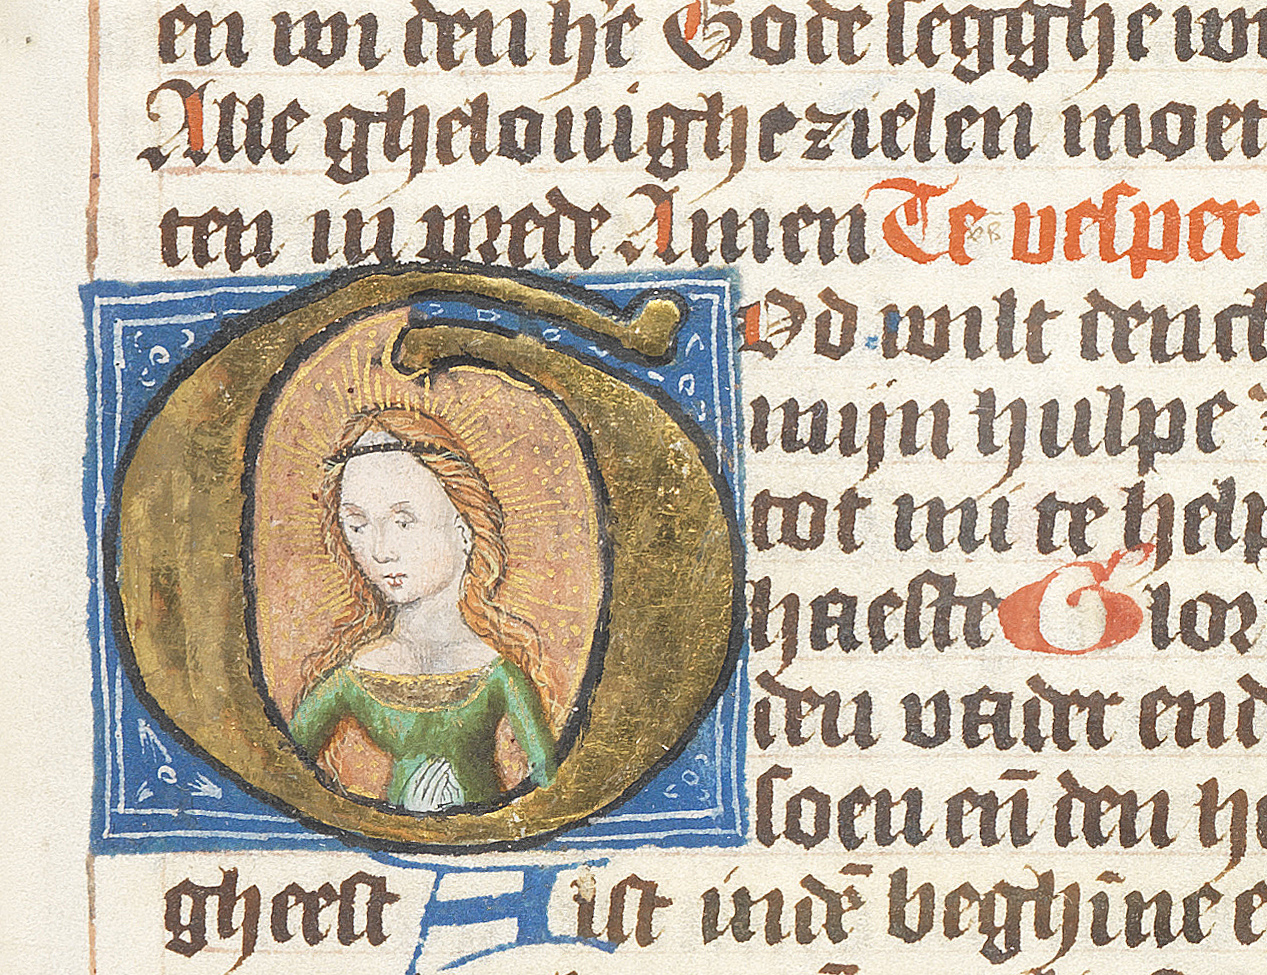 en wi den hr̄e Gode segghe wi
Alle ghelouighe zielen moet
ten in vrede Amen Te vesper
God wilt denck
mijn hulpe
tot mi te help
haeste Glor
den vader end
soen en̄ den he
gheest Alst indē beghīne e